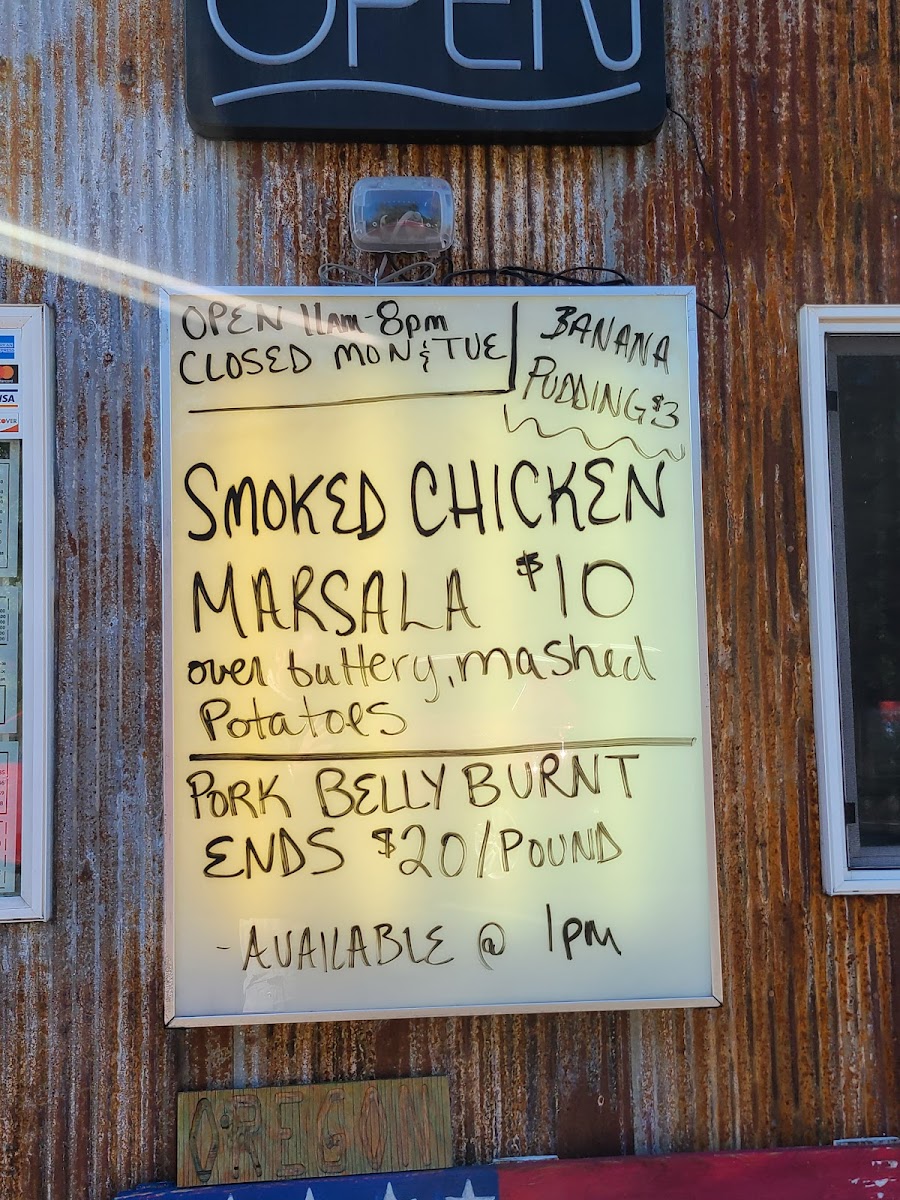 OPEN
OPEN 11AM-8pm
CLOSED MON & TUE
BANANA
PUDDING $3
SMOKED CHICKEN
MARSALA $10
over buttery, mashed
Potatoes
PORK BELLY BURNT
ENDS $20/POUND
- AVAILABLE @ 1pm
OREGON